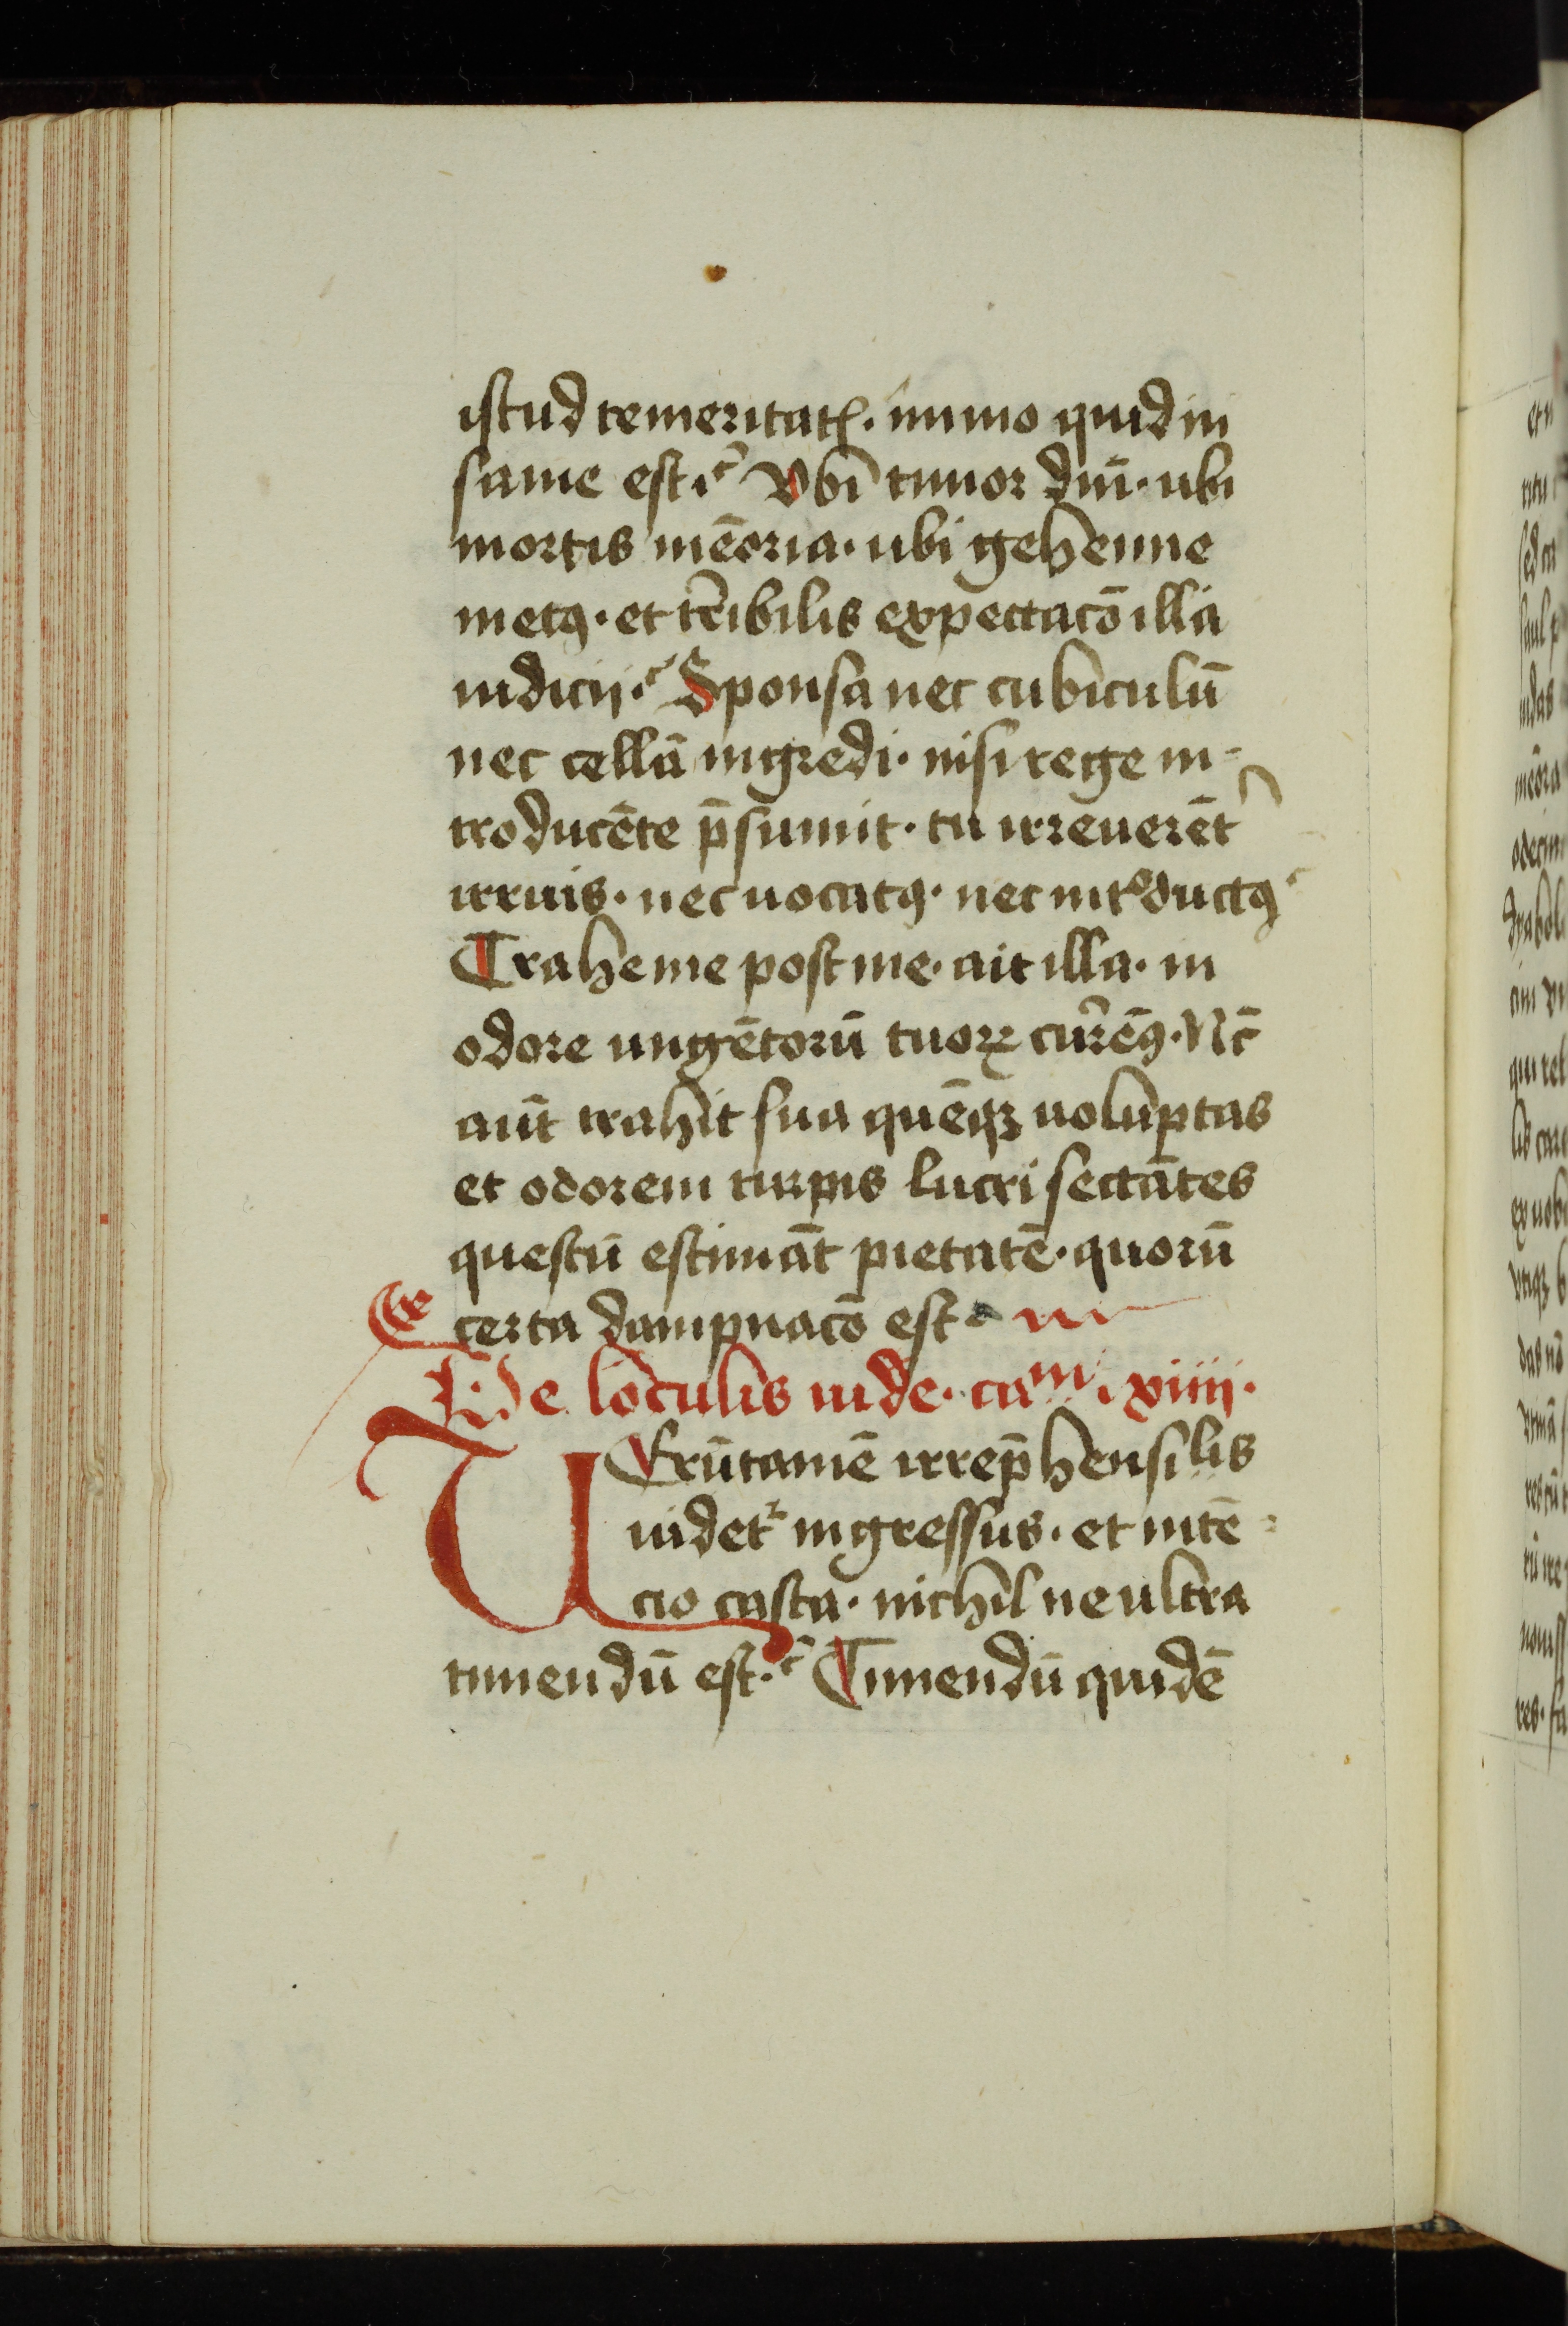 istud temeritatꝭ. immo quid in
sanie est. Vbi timor dnī. ubi
mortis mēoria. ubi gehenne
metꝯ. et tr̄ibilis expectacō illa
iudicij. Sponsa nec cubiculū
nec cellā ingredi. nisi rege in-
troducēte p̄sumit. tu irreuerēt᷑
irruis. nec uocatꝯ. nec intᵒductꝯ
Trahe me post me. ait illa. in
odore ungētorū tuoꝝ cur̄emꝯ. Nc̄
aūt trahit sua quēqꝫ uoluptas
et odorem turpis lucri sectātes
questū estimāt pietatē. quorū
certa dampnacō est
De loculis iude. caᵐ. xiiij.
VErūtamē irrep̄hensilis
uidetᷣ ingressus. et intē-
cio casta. nichil ne ultra
timendū est. Timendū quidē